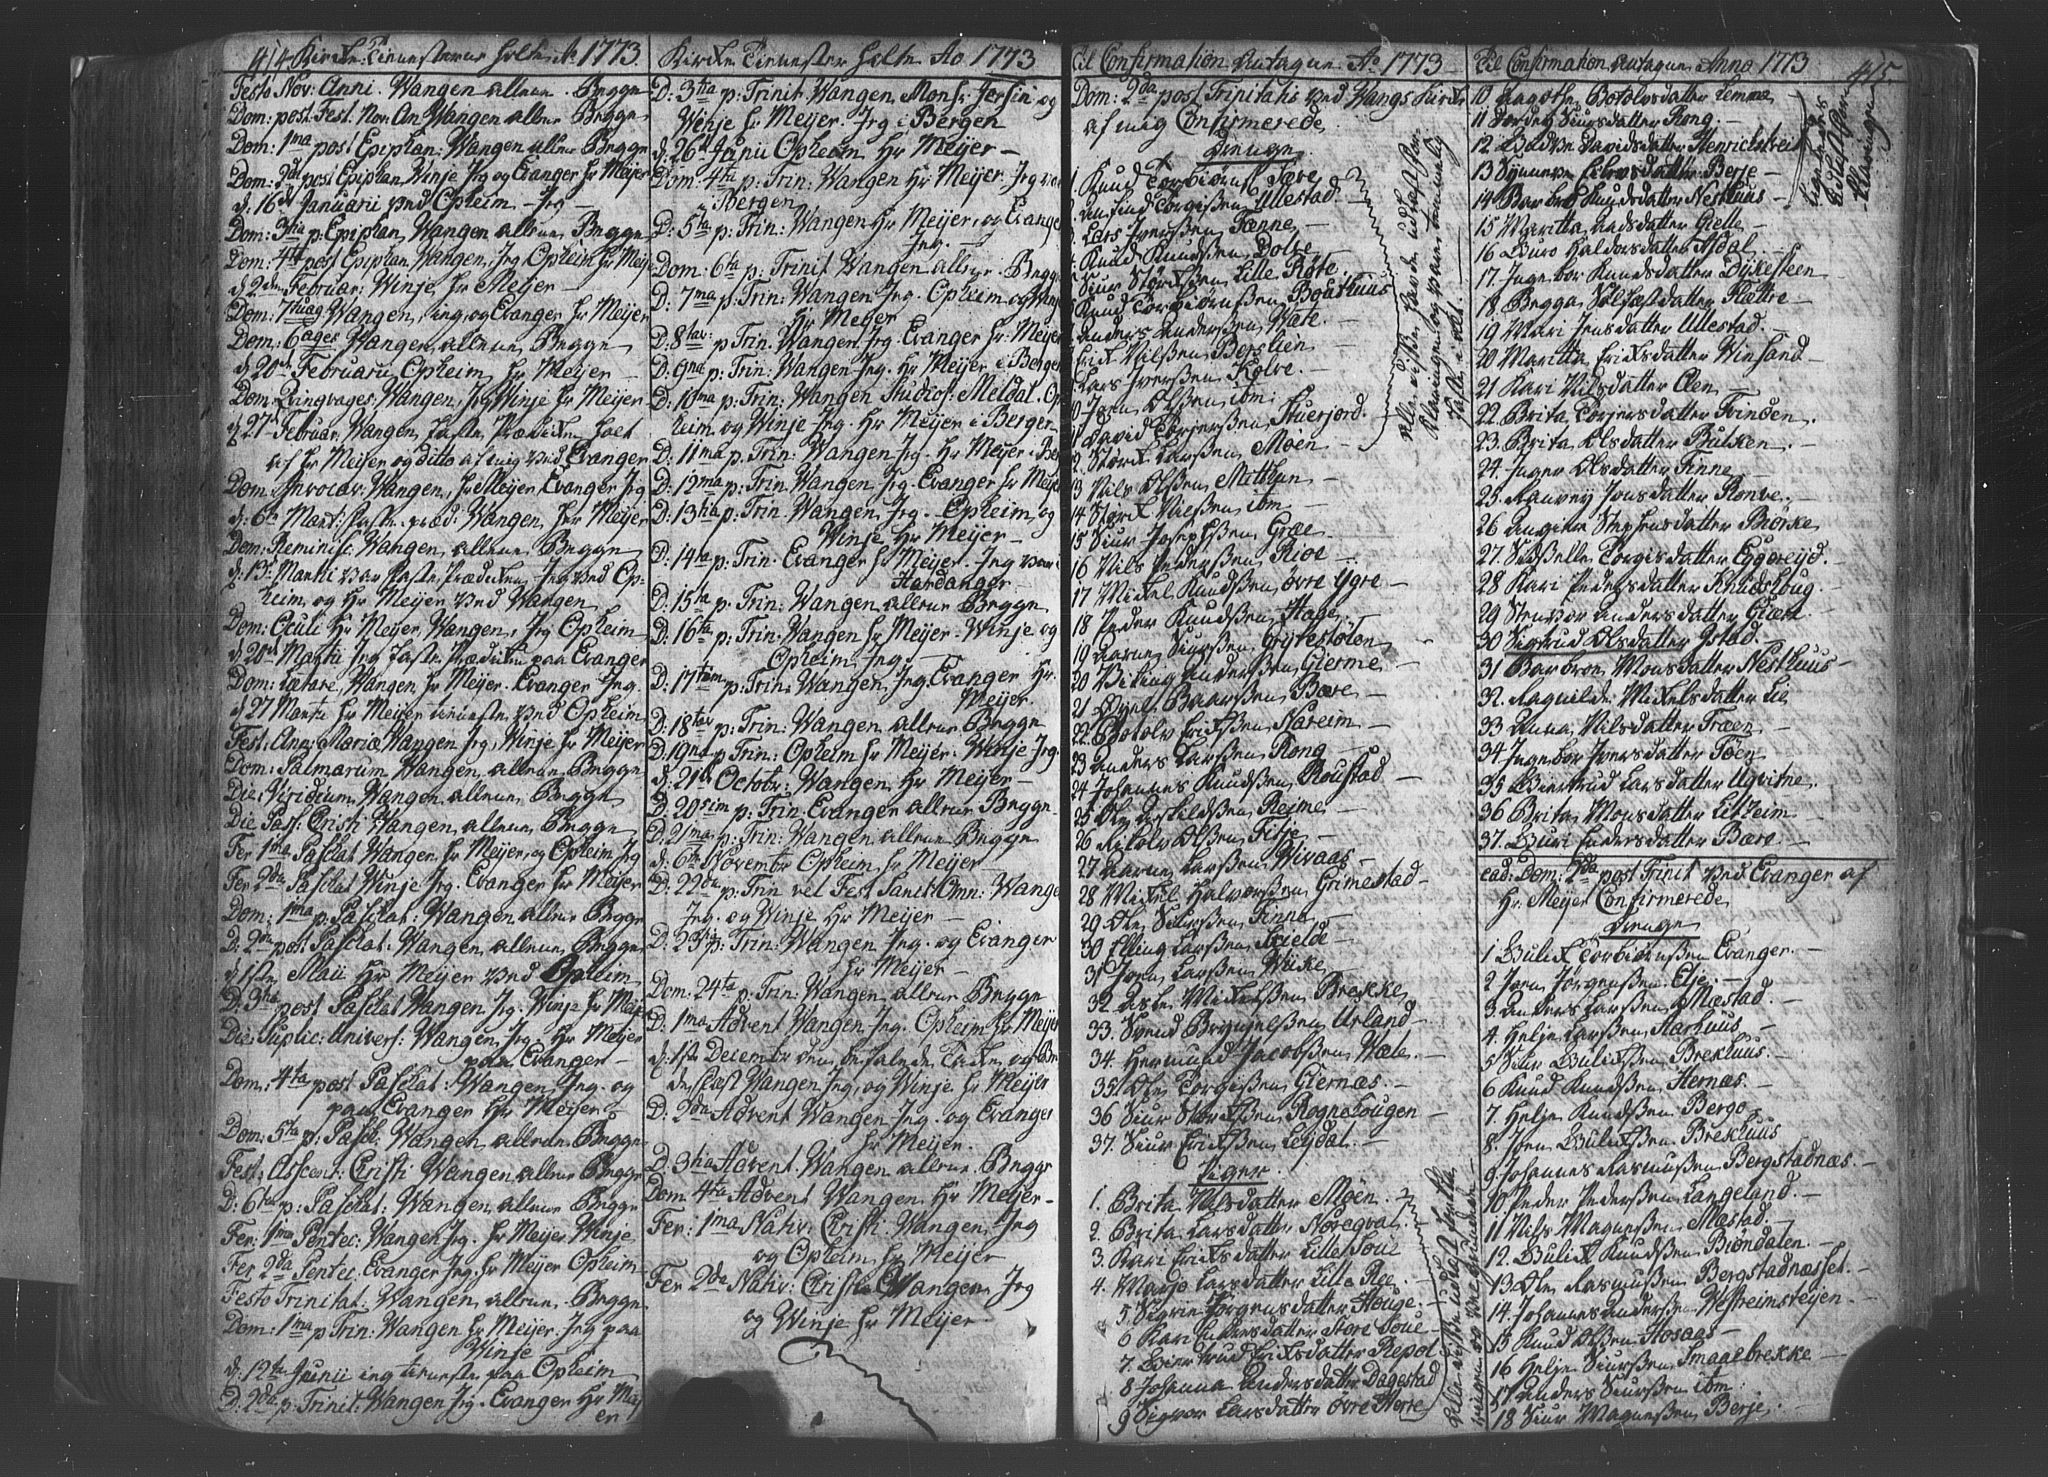 414 Kirke Tienester holte Ao 1773
Festo Nov: Anni. Wangen allene Begge
Dom: post Fest. Nov. An Wangen allene Begge
Dom: 1ma post Epiphan: Wangen allene Begge
Dom: 2da post Epiphan Winje Jeg og Evanger Hr Meijer
d. 16de Januarii ved Opheim Jeg
Dom: 3tia p: Epiphan Wangen allene Begge
Dom: 4ta post Epiphan Wangen, Jeg Opheim Hr Meijer
d 2den Februar: Winje, Hr Meijer
Dom: 7tuag Wangen, jeg og Evanger Hr Meijer
Dom: 6ages Wangen allene Begge
d. 20de Februarii Opheim, Hr Meijer
Dom: Qvinqvages: Wangen, Jeg Winje Hr Meijer
d 27de Februar Wangen faste Prædiken holt
af Hr Meijer og ditto af mig ved Evanger
Dom: Invocav: Wangen, Hr Meijer Evanger Jeg
d. 6te Mart: faste præd: Wangen, Hr Meijer
Dom: Reminisc: Wangen, allene Begge
d. 13de Martii var faste Prædiken, Jeg ved Op-
heim og Hr Meijer ved Wangen
Dom: Oculi Hr Meijer Wangen, Jeg Opheim
d 20de Martii Jeg faste Prædiken paa Evanger
Dom: Lætare, Wangen, Hr Meijer. Evanger Jeg.
d 27 Martii Hr Meijer tieneste ved Opheim
Fest: Ann: Mariæ Wangen Jeg, Winje Hr Meijer
Dom: Palmarum Wangen, allene Begge
Die: Viridium Wangen allene Begge
Die Pass: Cristi Wangen, allene Begge
Fer 1ma Paschat Wangen Hr Meijer, og Opheim Jeg
Fer 2da Paschat Winje Jeg. Evanger Hr Meijer
Dom: 1ma p: Paschat: Wangen, allene Begge
D: 2da post Paschat: Wangen allene Begge
d 1ste Maii Hr Meijer ved Opheim
D: 3tia post Paschat Wangen Jeg. Winje Hr Meijer
Die: Suplic: Univers: Wangen, Jeg Hr Meijer
paa Evanger
Dom: 4ta post Paschat: Wangen Jeg. og
paa Evanger Hr Meijer
Dom: 5ta p: Pasch: Wangen allene Begge
Fest: Ascent: Cristi Wangen allene Begge
D: 6ta p: Paschat: Wangen, allene Begge
Fer. 1ma Pentec: Wangen Jeg. Hr Meijer Winje
Fer 2da Pentec. Evanger Jeg. Hr Meijer Opheim
Festo Trinitat: Wangen, allene Begge
Dom: 1ma p Trin: Wangen Hr Meijer Jeg paa
Winje
d. 12te Junii ieg tieneste paa Opheim
D. 2da p: Trinit: Wangen Jeg. Evanger Hr Mey
er
Kirke Tienester holte Ao 1773
D: 3tia p: Trinit. Wangen, Monsr. Jersin og
Winje Hr Meijer. Jeg i Bergen
d. 26de Junii Opheim Hr Meijer
Dom: 4ta p: Trin: Wangen Hr Meijer. Jeg var i
Bergen
D: 5ta p: Trin: Wangen Hr Meijer, og Evanger
Jeg.
Dom: 6ta p: Trinit Wangen allene Begge
D: 7ma p: Trin: Wangen Jeg. Opheim og Winje
Hr Meijer
D: 8tav: p Trin: Wangen, Jeg. Evanger Hr Meijer
D: 9na p: Trin: Wangen Jeg. Hr Meijer i Bergen
D: 10ma p: Trin: Wangen Studios: Meldal. Op
heim og Winje Jeg. Hr Meijer i Bergen
D: 11ma p. Trin: Wangen Jeg. Hr Meijer i Ber
D: 12ma p: Trin: Wangen Jeg. Evanger Hr Meijer
D: 13tia p: Trin: Wangen, Jeg. Opheim og
Winje Hr Meijer
D: 14ta p: Trin: Evanger Hr Meijer. Jeg var i
Hardanger
D: 15ta p: Trin: Wangen, allene Begge
D: 16ta p: Trin: Wangen Hr Meijer. Winje og
Opheim Jeg.
D: 17tem p: Trin: Wangen, Jeg. Evanger Hr.
Meijer
D: 18tav p: Trin: Wangen allene Begge
D: 19na p: Trin: Opheim Hr Meijer. Winje Jeg.
d. 21de Octobr: Wangen, Hr Meijer
D: 20sim p: Trin: Evanger allene Begge
D: 21ma p: Trin: Wangen allene Begge
d: 6te Novembr Opheim, Hr Meijer
D: 22da p: Trin vel Fest Sanct: Omn. Wangen
Jeg. og Winje Hr Meijer
D: 23tia p: Trin: Wangen Jeg. og Evanger
Hr Meijer
Dom: 24ta p: Trin: Wangen allene Begge
D: 1ma Advent Wangen Jeg. Opheim Hr Meijer
d: 1ste Decembr den befalede Takke og Be
defæst Wangen Jeg, og Winje Hr Meijer
D: 2da Advent Wangen Jeg. og Evanger
Hr Meijer.
D. 3tia Advent. Wangen allene Begge
Dom 4ta Advent Wangen Hr Meijer
Fer: 1ma Nativ: Cristi Wangen, Jeg
og Opheim, Hr Meijer
Fer 2da Nativ: Cristi Wangen, Jeg
og Winje Hr Meijer
Til Confirmation Antagne Ao 1773
Dom: 2da post Trinitatis ved Wangs Kirke
af mig Confirmerede
Drenge
1 Knud Torbiørns. Tære
2. Anfind Torgißen Ullestad
3. Lars Iverßen Fenne
4. Knud Knudßen Dolve
5 Siur Størksßen Lille Røte
6 Knud Torbiørnßen Bouthuus
7. Anders Anderßen Væte
8 Erik Nilßen Berslien
9. Lars Iverßen Kolve
10 Joen Olßen ibm:
11 David Torjerßen Stuerjord
12 Størk Larßen Möen
13 Nils Olßen Matthun
14 Størk Nilßen ibm
15 Siur Josephßen Græe
16 Nils Pederßen Rioe
17 Mikel Knudßen øvre Ygre
18 Peder Knudßen Hage
19 Aarne Siurßen Gryrestølen
20 Viking Anderßen Gierme
21 Orjel Baarßen Bære
22 Botolv Erikßen Nareim
23 Anders Larßen Rong
24 Johannes Knudßen Roustad
25 Ole Askildßen Rejme
26 Botolv Olßen Fitje
27 Aarne Larßen Wivaas
28 Mikkel Halvorßen Grimestad
29 Ole Siurßen Finne
30 Elling Larßen Skielde
31 Joen Larßen Wike
32 Asle Mikelßen Brekke
33. Svend Brynjelßen Urland
34. Hermund Jacobßen Væte
35. Ole Torgißen Giernæs
36 Siur Størkßen Rognehougen
37. Siur Erikßen Lejdal
Piger
1. Brita Nilsdatter Möen
2. Brita Larsdatter Noreqval
3. Kari Eriksdatter Lille Soue
4. Margo Larsdatter Lille Ree
5. Sigvie Jørgensdatter Houge
6 Kari Endersdatter Store Soue
7. Giertrud Eriksdatter Repol
8 Johanna Andersdatter Dagestad
9 Sigvor Larsdatter øvre Herre
Til Confirmation Antagne Anno 1773 415
10 Ragothe Botolvsdatter Lemme
11 Sordey Siursdatter Rong
12 Gudve Davidsdatter Henrichstveit
13 Synneve Eilevsdatter Berje
14 Barbro Knudsdatter Nesthuus
15 Maritta Aadsdatter Gielle
16 Guro Haldorsdatter Afdal
17. Ingebor Knudsdatter Dykesteen
18. Begga Solfæstdatter Flættre
19 Mari Jensdatter Ullestad
20 Maritta Eriksdatter Winsand
21 Kari Nilsdatter Oen
22. Brita Torjersdatter Tvinden
23. Brita Olsdatter Bulken
24. Inger Olsdatter Finne
25. Ranvey Jonsdatter Ronve
26 Angier Stephensdatter Biørke
27. Sidselle Torgisdatter Eggereijd
28 Kari Pedersdatter Knudshoug
29 Stenvor Andersdatter Giære
30 Sigtrud Olsdatter Istad
31 Barbroe Monsdatter Nesthuus
32. Ragnilde Mikelsdatter Lie
33 Anna Nilsdatter Træen
34 Ingebor Iversdatter Tøen
35 Giertrud Larsdatter Ugvitne
36 Brita Monsdatter Litheim
37. Guri Endersdatter Bære
ead: Dom: 2da post Trinit ved Evanger af
Hr. Meijer Confirmerede
Drenge
1 Gulik Torbiørnßen Evanger
2 Joen Jørgenßen Elje
3 Anders Larßen Mæstad
4. Helje Larßen Aarhuus
5 Siur Gulikßen Brekhuus
6 Knud Knudßen Hernæs
7. Helje Knudßen Bergo
8. Joen Gulikßen Brekhuus
9 Johannes Rasmußen Bergstadnæs
10 Peder Pederßen Langeland
11 Nils Magneßen Mæstad
12. Gulik Knudßen Biøndalen
13. Ole Rasmußen Bergstadnæsset
14. Johannes Anderßen Westreimsveijen
15 Knud Olßen Hosaas
16 Helje Siurßen Smaalbrekke
17 Anders Siurßen ibm
18 Siur Magneßen Berje